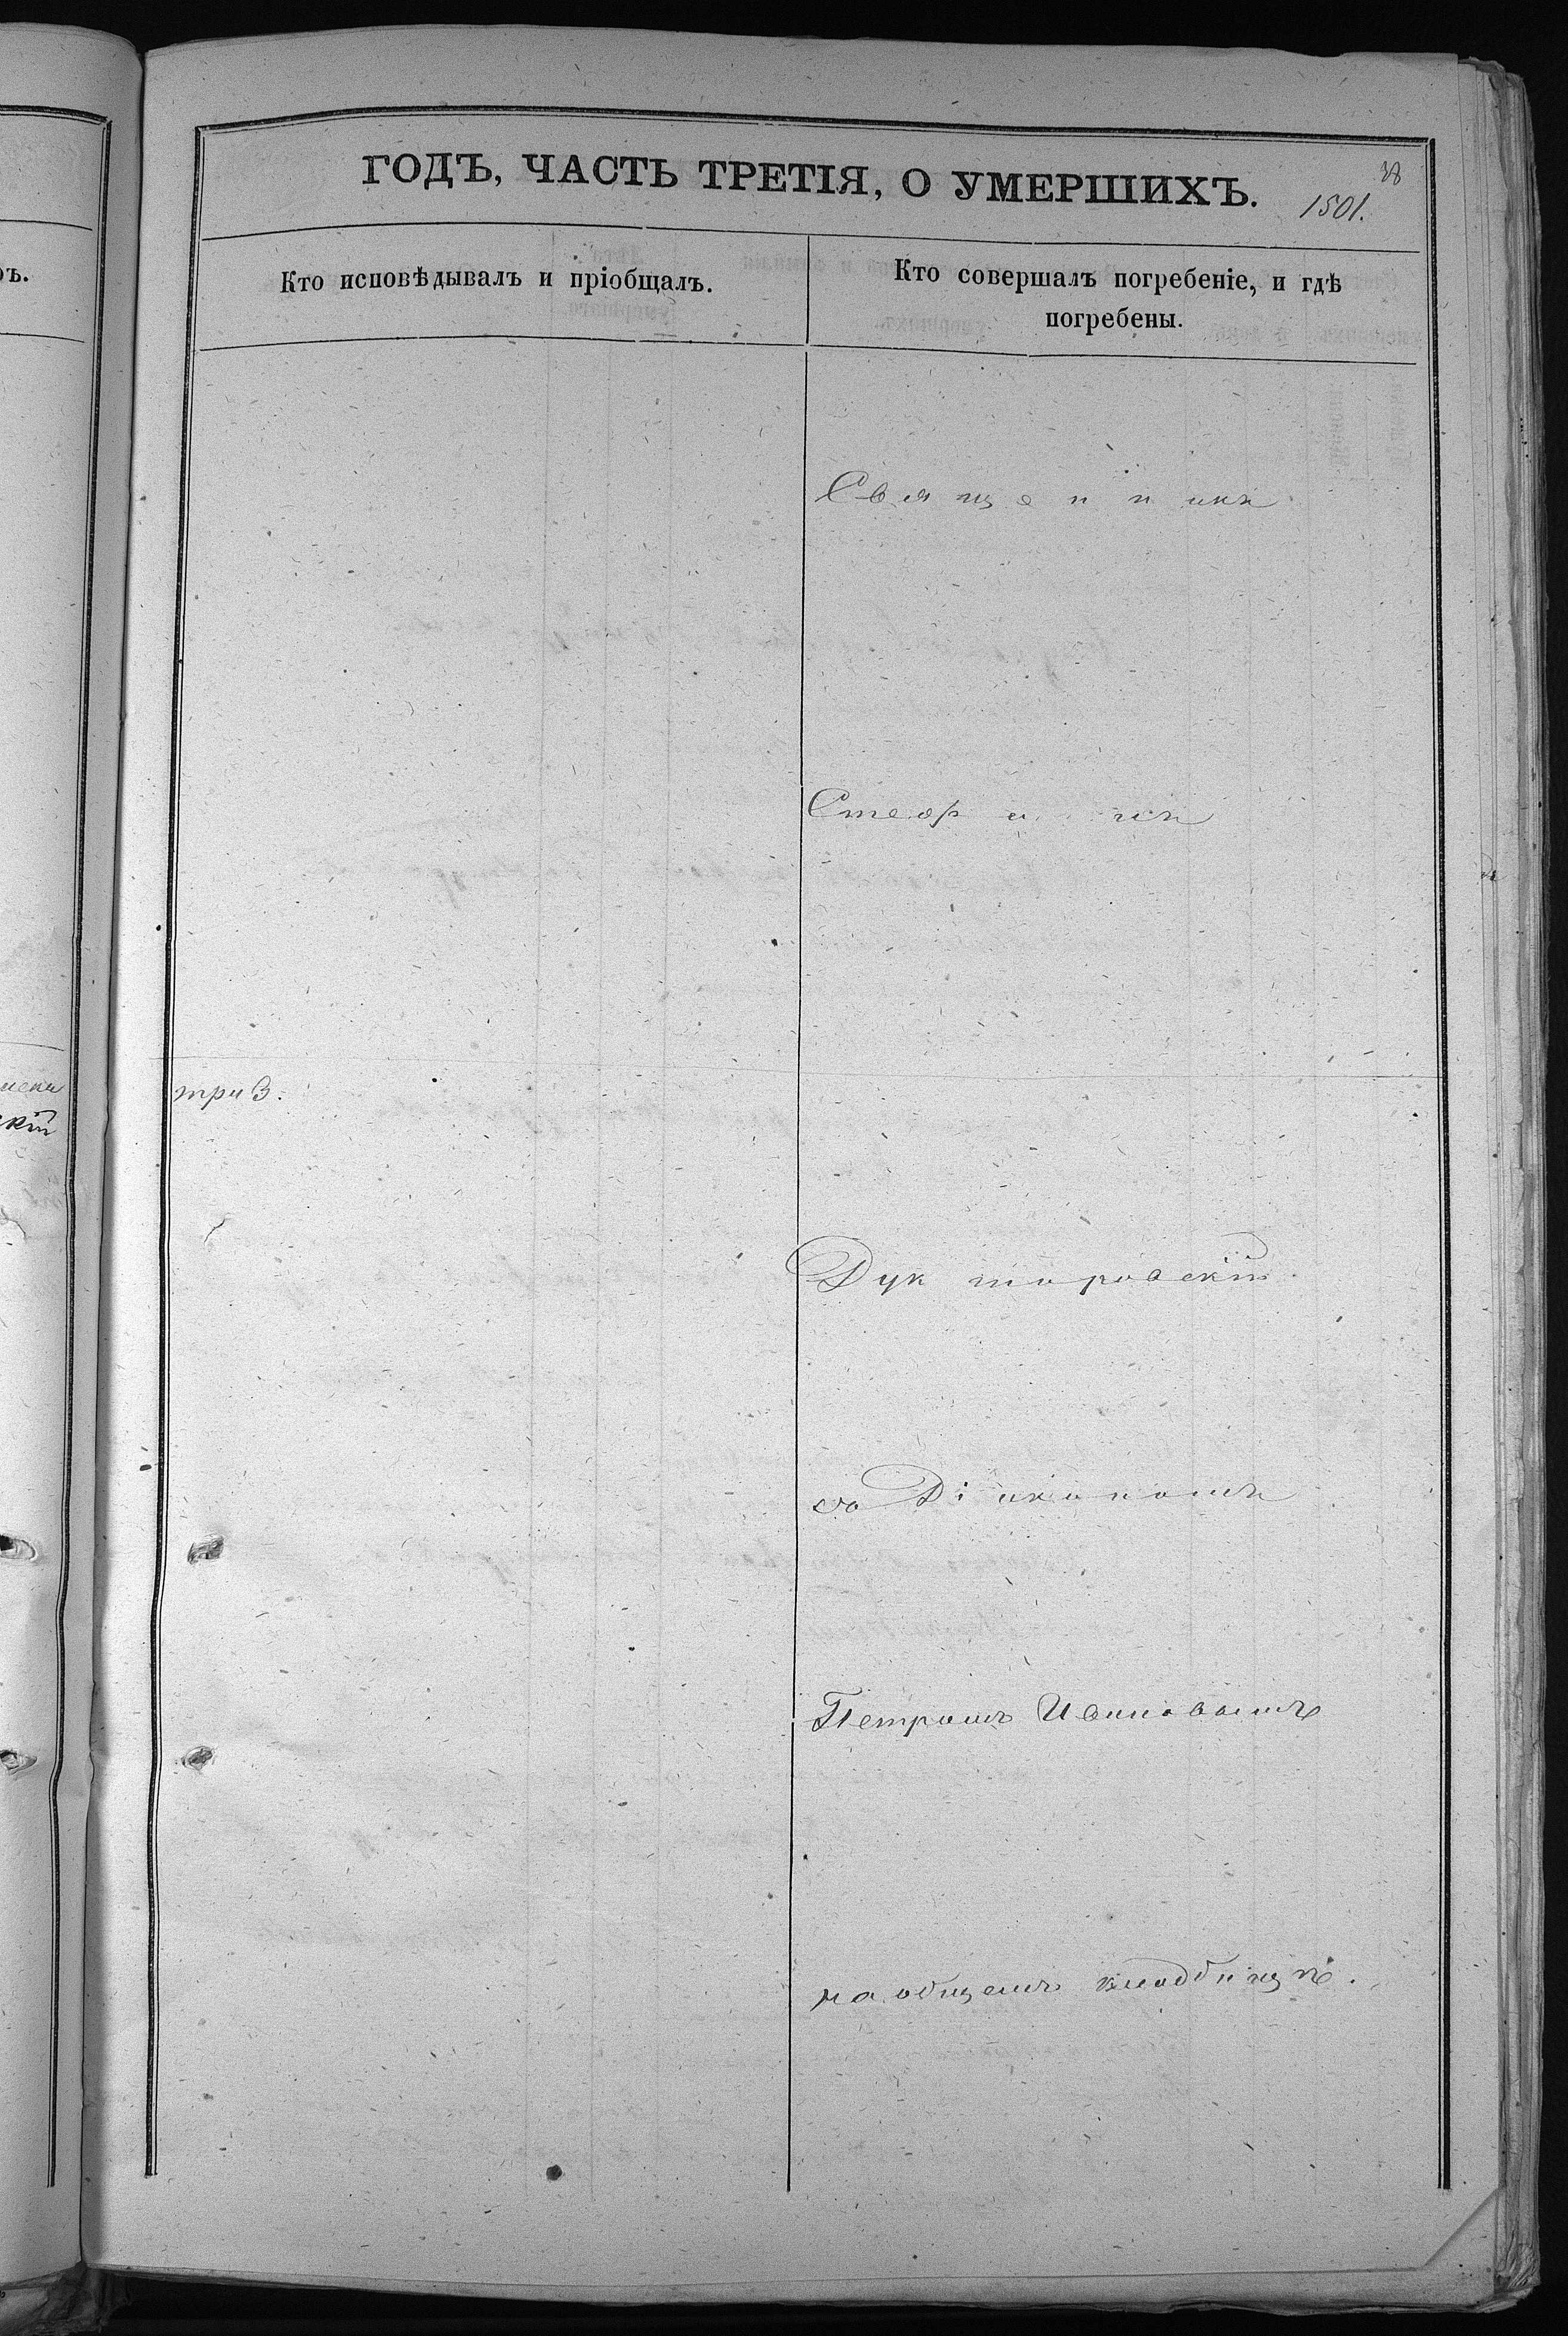 ГОДЪ, ЧАСТЬ ТРЕТІЯ, О УМЕРШИХЪ.
28
1501.
Кто исповѣдывалъ и пріобщалъ.
Кто совершалъ погребеніе, и гдѣ
погребены.
Священникъ
трив.
Дукторовскій
со Діакономъ
Петромъ Ивановымъ
на общемъ кладбищѣ.